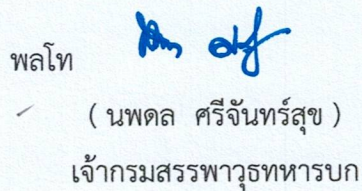 พลโท
( นพดล ศรีจันทร์สุข )
เจ้ากรมสรรพาวุธทหารบก